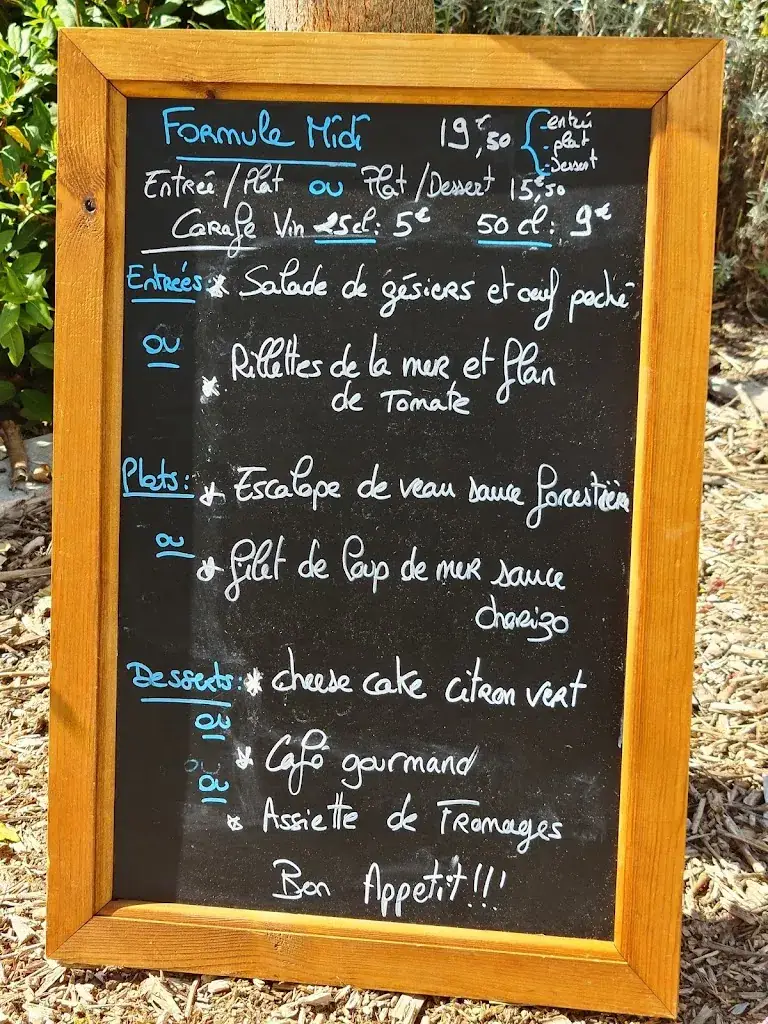 Formule Midi 19€,50 { -entrée
-plat
-Dessert
Entrée/Plat ou Plat/Dessert 15€,50
Carafe Vin 25cl: 5€ 50 cl: 9€
Entrées: * Salade de gésiers et oeuf poché
ou
* Rillettes de la mer et flan
de Tomate
Plats: * Escalope de veau sauce forestière
ou
* filet de loup de mer sauce
chorizo
Desserts: * cheese cake citron vert
ou
* Café gourmand
ou
* Assiette de Fromages
Bon Appetit!!!